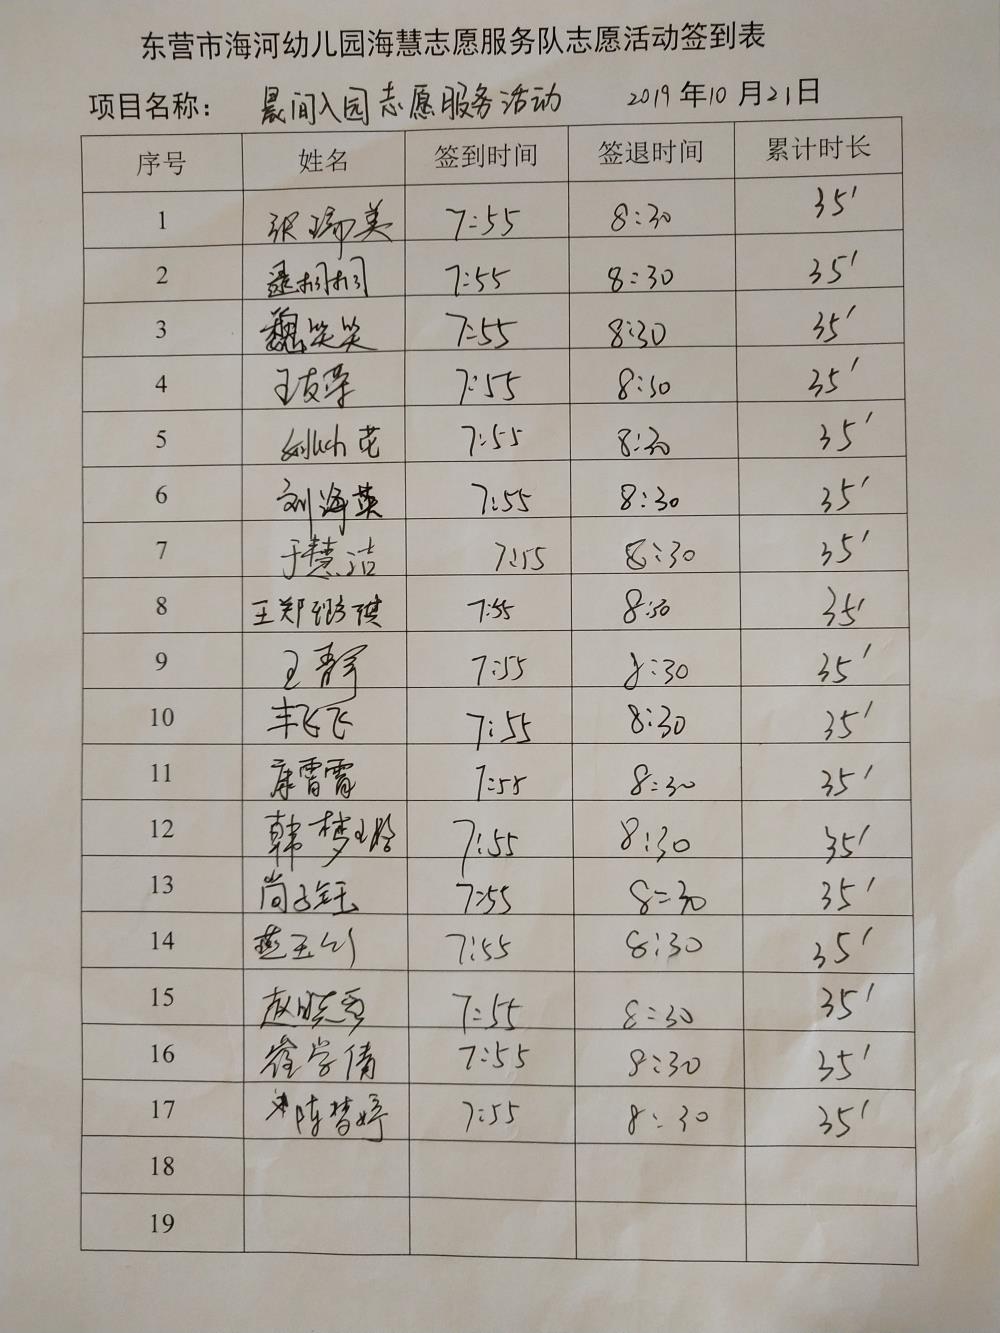 东营市海河幼儿园海慧志愿服务队志愿活动签到表
项目名称： 晨间入园志愿服务活动 2019年10月21日
序号 姓名 签到时间 签退时间 累计时长
1 张瑞美 7:55 8:30 35′
2 逯桐桐 7:55 8:30 35′
3 魏笑笑 7:55 8:30 35′
4 王友荣 7:55 8:30 35′
5 7:55 8:30 35′
6 刘海英 7:55 8:30 35′
7 于慧洁 7:55 8:30 35′
8 王郑 琪 7:55 8:30 35′
9 王静 7:55 8:30 35′
10 丰飞飞 7:55 8:30 35′
11 康霄霄 7:55 8:30 35′
12 韩梦玲 7:55 8:30 35′
13 尚子钰 7:55 8:30 35′
14 燕玉 7:55 8:30 35′
15 赵晓 7:55 8:30 35′
16 崔学倩 7:55 8:30 35′
17 陈梦婷 7:55 8:30 35′
18
19